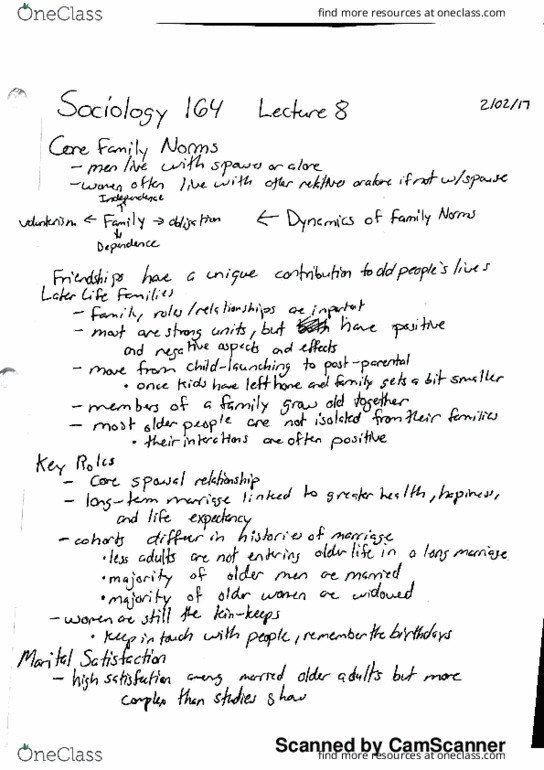 OneClass
find more resources at oneclass.com
Sociology 164 Lecture 8
2/02/17
Core Family Norms
- men live with spouse or alone
- women often live with other relatives or alone if not w/spouse
Independence
↑
volunterism ← Family → obligation ← Dynamics of Family Norms
↓
Dependence
Friendships have a unique contribution to old people's lives
Later Life Families
- family, roles/relationships are important
- most are strong units, but have positive
and negative aspects and effects
- move from child-launching to post-parental
• once kids have left home and family gets a bit smaller
- members of a family grow old together
- most older people are not isolated from their families
• their interactions are often positive
Key Roles
- Core spousal relationship
- long-term marriage linked to greater health, happiness,
and life expectancy
- cohorts differ in histories of marriage
• less adults are not entering older life in a long marriage
• majority of older men are married
• majority of older women are widowed
- women are still the kin-keeps
• keep in touch with people, remember the birthdays
Marital Satisfaction
- high satisfaction among married older adults but more
complex than studies show
Scanned by CamScanner
OneClass
find more resources at oneclass.com